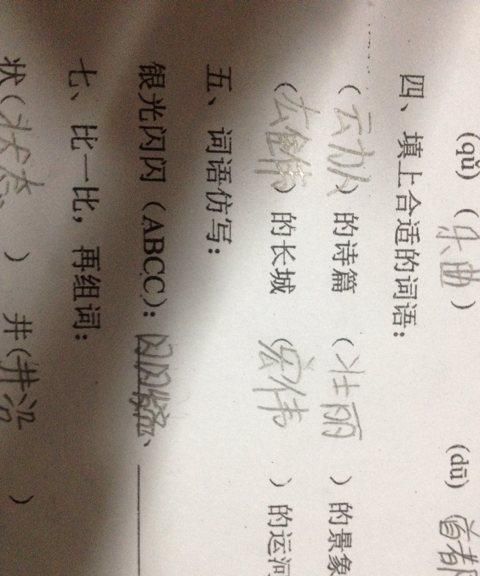 (qǔ)（乐曲） (dū)（首都
四、填上合适的词语：
（动人）的诗篇 （壮丽）的景象
（）的长城 （宏伟）的运河
五、词语仿写：
银光闪闪（ABCC）：
七、比一比，再组词：
状（状态） 井（井沿）